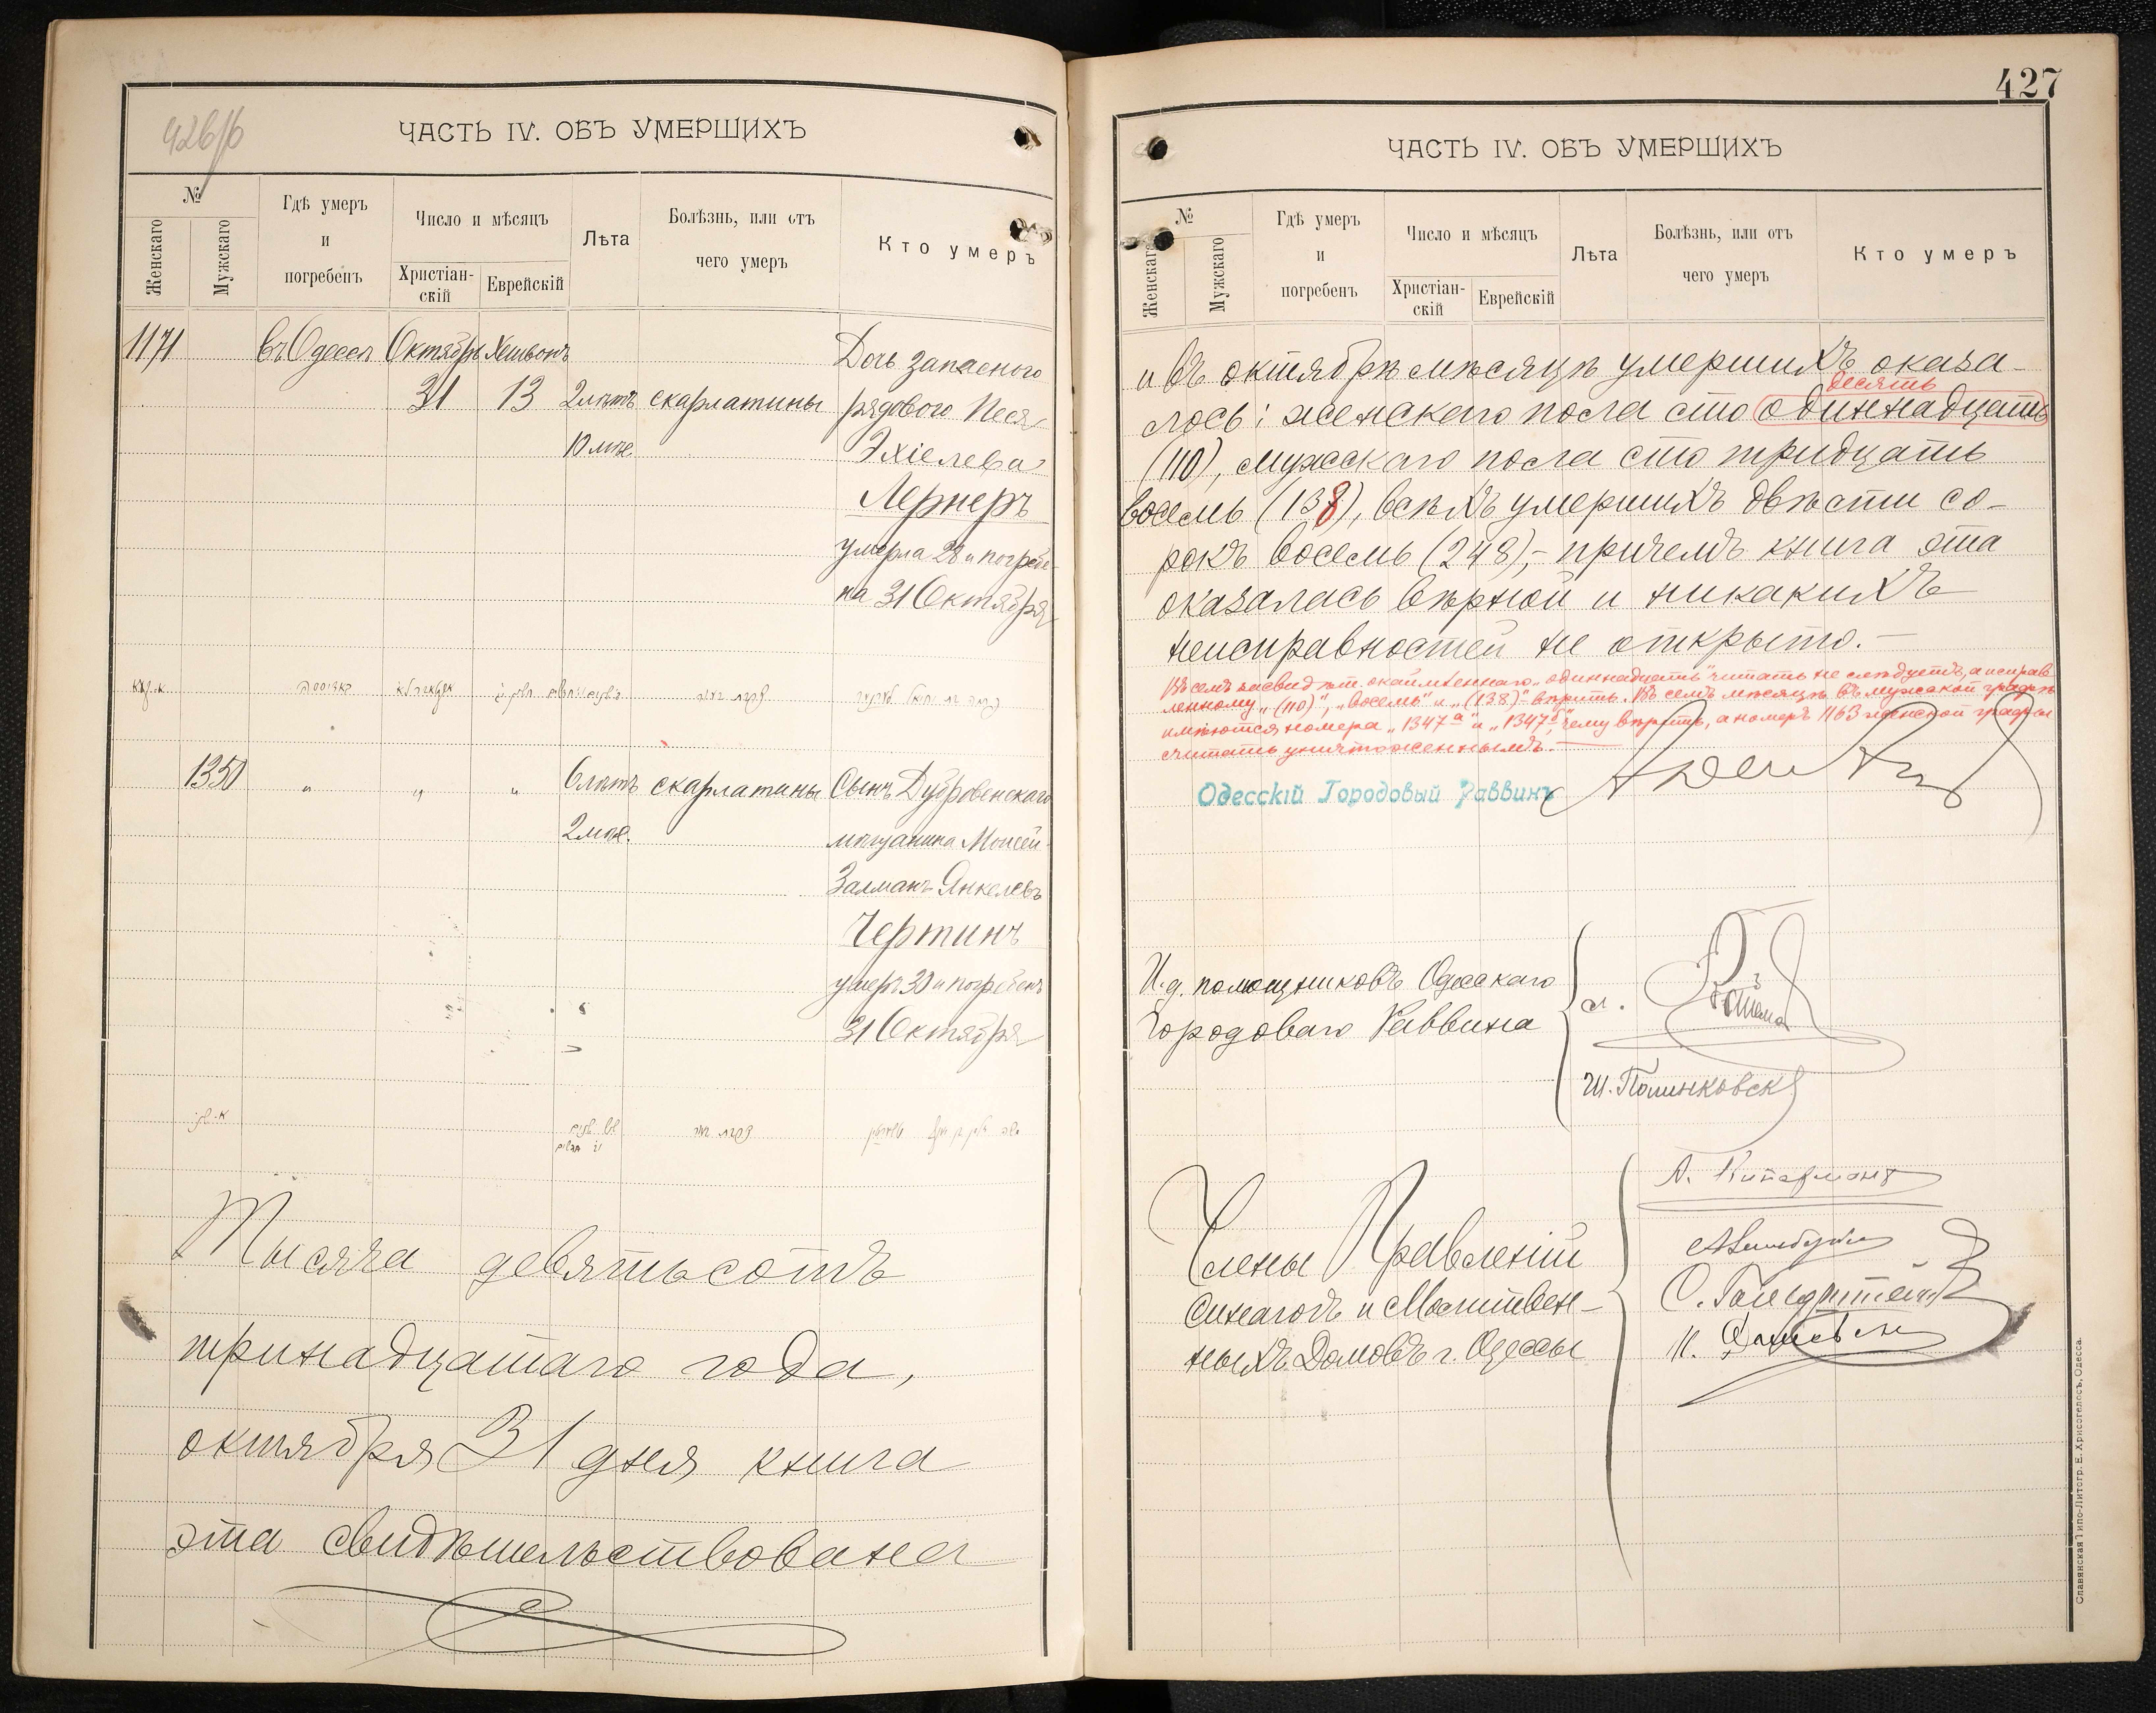 426/б
ЧАСТЬ IV. ОБЪ УМЕРШИХЪ
№
Женскаго
Мужскаго
Гдѣ умеръ
и
погребенъ
Число и мѣсяцъ
Христіан-
скій
Еврейскій
Лѣта
Болѣзнь, или отъ
чего умеръ
Кто умеръ
1171 въ Одессѣ Октябрь Хешвонъ Дочь запасного
31 13 2 лѣтъ скарлатины рядового Песя
10 мѣс. Эхіелева
Лернеръ
умерла 28 и погребе-
на 31 Октября
1350 " " " 6 лѣтъ скарлатины Сынъ Дубровенскаго
2 мѣс. мѣщанина Моисей
Залманъ Янкелевъ
Чертинъ
умеръ 30 и погребенъ
31 Октября
Тысяча девятьсотъ
тринадцатаго года,
октября 31 дня книга
эта свидѣтельствована
427
ЧАСТЬ IV. ОБЪ УМЕРШИХЪ
№
Женскаго
Мужскаго
Гдѣ умеръ
и
погребенъ
Число и мѣсяцъ
Христіан-
скій
Еврейскій
Лѣта
Болѣзнь, или отъ
чего умеръ
Кто умеръ
и въ октябрѣ мѣсяцѣ умершихъ оказа-
десять
лось: женскаго пола сто одиннадцать
(110), мужскаго пола сто тридцать
восемь (138), всѣхъ умершихъ двѣсти со-
рокъ восемь (248),- причемъ книга эта
оказалась вѣрной и никакихъ
неисправностей не открыто.-
Въ семъ засвид. ѣт. окаймленнаго „одиннадцать" читать не слѣдуетъ, а исправ-
ленному „(110)", „восемь" и „(138)" вѣрить. Въ семъ мѣсяцѣ въ мужской графѣ
имѣются номера „1347а" и „1347б", чему вѣрить, а номеръ 1163 женской графы
считать уничтоженнымъ.-
Одесскій Городовый Раввинъ
И.д. помощниковъ Одесскаго
Городоваго Раввина
Ш. Полинковск
Члены Правленій
Синагогъ и Молитвен-
ныхъ Домовъ г. Одессы
Славянская Типо-Литогр. Е. Хрисогелосъ, Одесса.